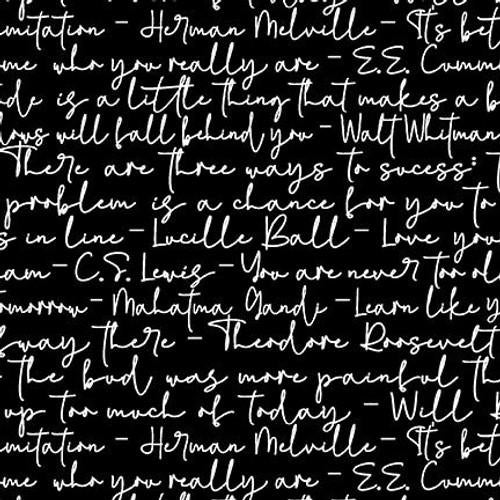 imitation - Herman Melville - It's bet
ome who you really are - E.E. Cumm
ude is a little thing that makes a b
dows will fall behind you - Walt Whitman
There are three ways to sucess: T
problem is a chance for you to
s in line - Lucille Ball - Love you
am - C.S. Lewis - You are never too ol
omorrow - Mahatma Gandi - Learn like y
fway there - Theodore Roosevelt
the bud was more painful th
up too much of today - Will R
imitation - Herman Melville - It's bet
ome who you really are - E.E. Cumm